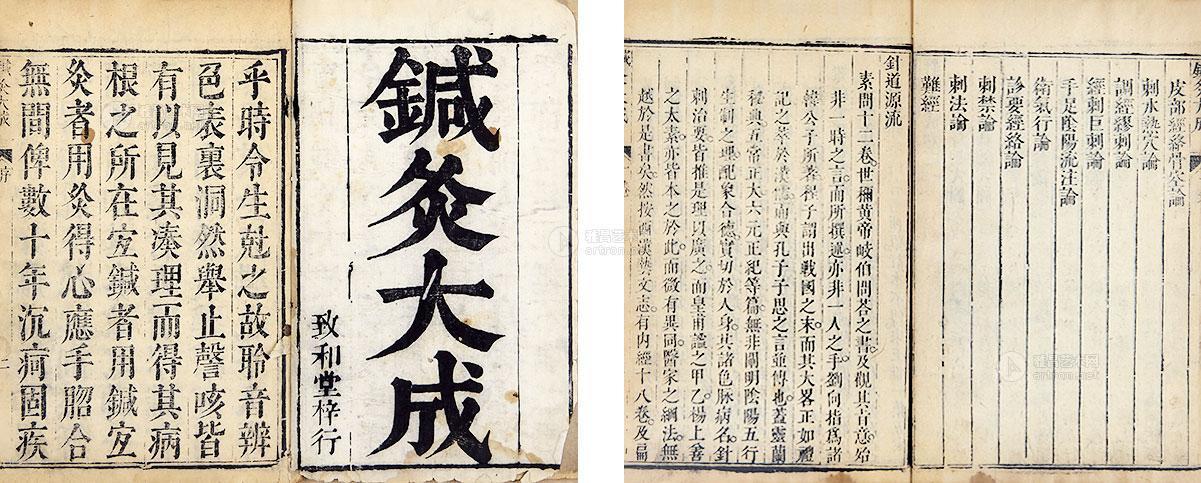 鍼灸大成
致和堂梓行
乎時令生尅之故聆音辨
色表裏洞然舉止謦咳皆
有以見其凑理而得其病
根之所在宜鍼者用鍼宜
灸者用灸得心應手脗合
無間俾數十年沉疴固疾
鍼灸大成 序 二
皮部經絡骨空論
刺水熱穴論
調經繆刺論
經刺巨刺論
手足陰陽流注論
衛氣行論
診要經絡論
刺禁論
刺法論
難經
針道源流
素問十二卷世稱黃帝岐伯問荅之書及觀其旨意始
非一時之言而所撰述亦非一人之手劉向指爲諸
韓公子所著程子謂出戰國之末而其大畧正如禮
記之萃於漢儒而與孔子子思之言並傳也蓋靈蘭
秘典五常正大六元正紀等篇無非闡明陰陽五行
生制之理配象合德實切於人身其諸色脉病名針
刺治要皆推是理以廣之而皇甫謐之甲乙楊上善
之太素亦皆本之於此而微有異同醫家之綱法無
越於是書矣然按西漢藝文志有內經十八卷及扁
雅昌艺术网
artron.net